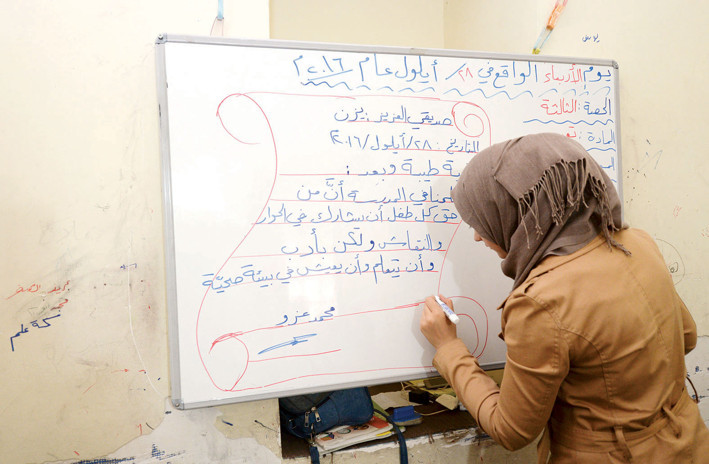 يوم الأربعاء الواقع في ٢٨/ أيلول عام ٢٠١٦م
الحصة: الثالثة
المادة:
صديقي العزيز: يزن
التاريخ: ٢٨/أيلول/٢٠١٦م
ية طيبة وبعد:
في المدرسة أنَّ من
حق كل طفل أن يشارك في الحوار
والنقاش ولكن بأدب
وأن يتعلم وأن يعيش في بيئة صحيّة
محمد عزو